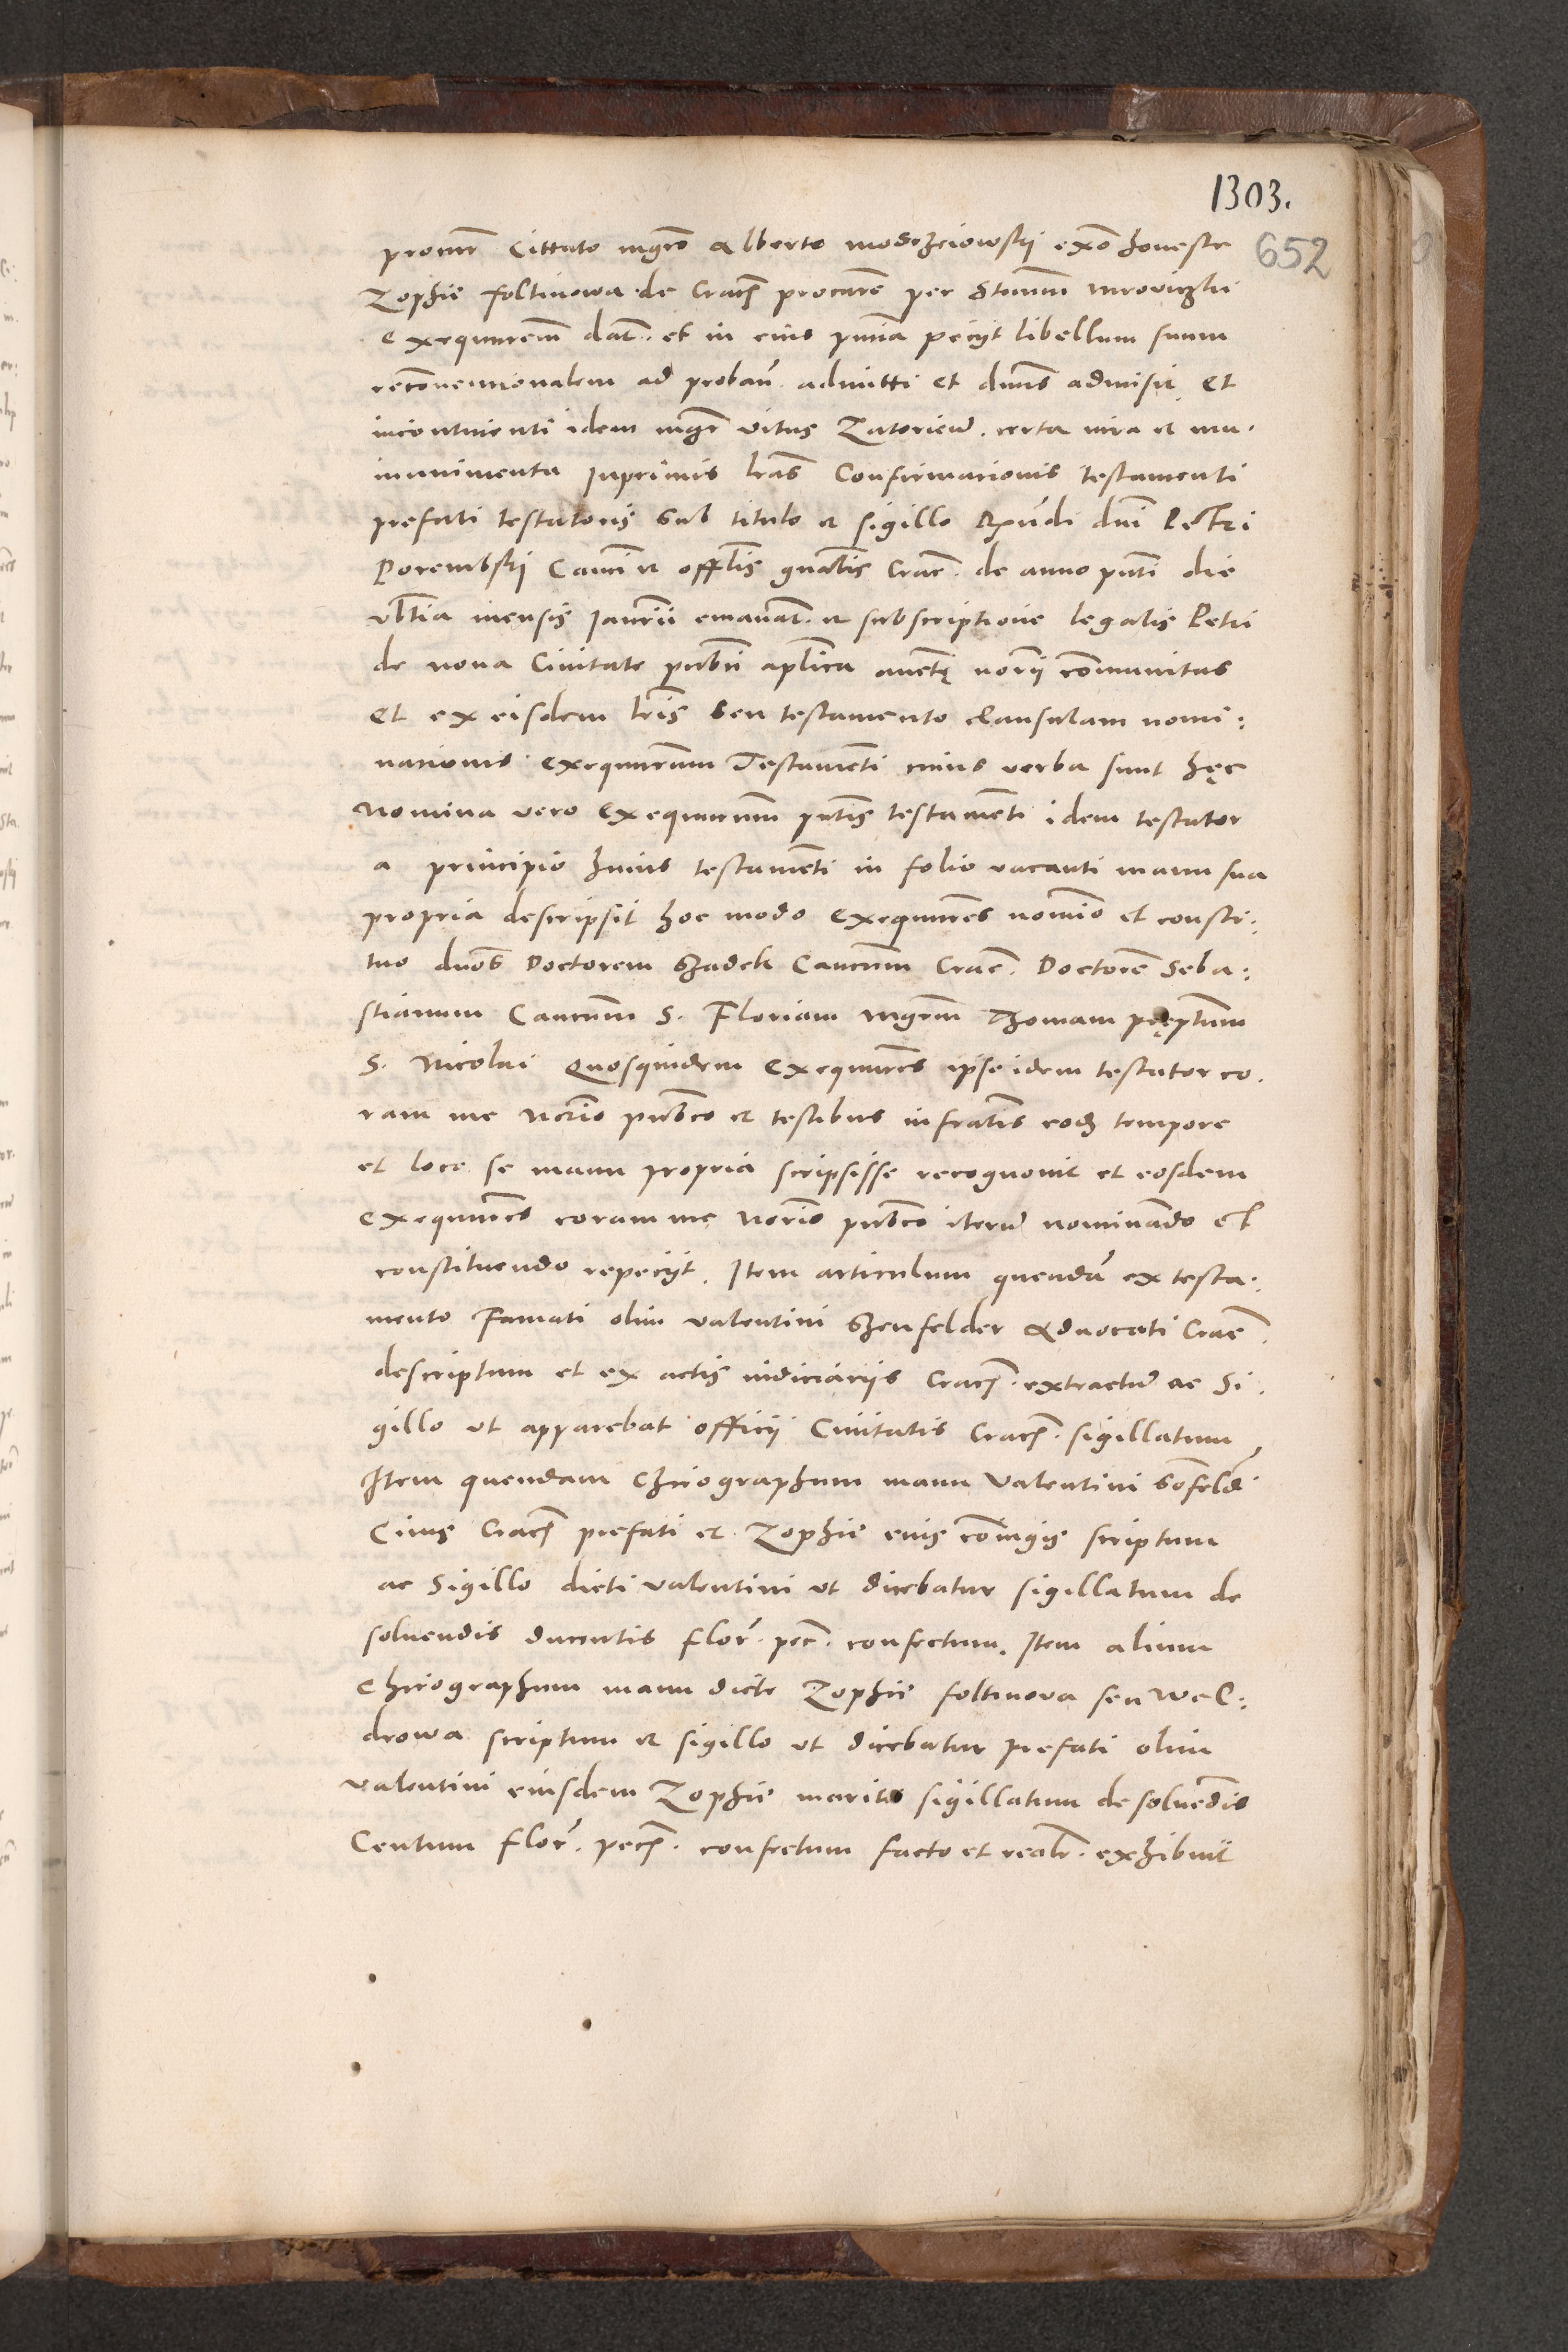 1303.
652
procur̄ Cittato mgr̄o Alberto modrzeiowskij ex̄o honeste
Zophie foltinowa de Crac̄ procur̄em per Stenum
exequutorem dat̄. et in eius pn̄tia peciit libellum suum
recōnentionalem ad proband̄ admitti et dn̄us admisit et
incontinenti idem mgr̄ vitus Zatoricen̄. certa iura et mu-
munimenta Inprimis lr̄as Confirmationis testamenti
prefati testatoris sub titulo et sigillo Rn̄di dn̄i Petri
Porembskij Can̄ci et offlīs gnālis Crac̄. de anno pn̄ti die
vltīa mensis Jan̄rii emanat̄. et subscriptione legalis Petri
de noua Ciuitate publici aplīca auctē norīi cōmunitas
et ex eisdem lr̄is seu testamento clausulam nomi:
nationis exequutorum Testamenti cuius verba sunt hęc
Nomina vero exequutorum pn̄tis testamēti idem testator
a principio huius testamēti in folio vacanti manu sua
propria descripsit hoc modo exequutores nomīo et consti:
tuo dn̄os Doctorem Szadek Canc̄um Crac̄. Doctorē Seba:
stianum Canc̄um S. Floriani mgr̄um Thomam pręptum
S. Nicolai Quosquidem exequutores ipse idem testator co.
ram me Notrīo publico et testibus infratis eod̄ tempore
et loco se manu propria scripsisse recognouit et eosdem
exequutores coram me Norīo publico iterū nominādo et
constituendo repeciit. Item articulum quendā ex testa:
mento Famati olim valentini Szenfelder Aduocati Crac̄.
descriptum et ex actis iudiciariis Crac̄. extractū ac Si.
gillo ut apparebat officij Ciuitatis Crac̄. sigillatum,
Item quendam Chirographum manu Valentini Sōfeld̄
Ciuis Crac̄ prefati et Zophie euis cōiugis scriptum
ac Sigillo dicti valentini ut dicebatur sigillatum de
soluendis ducentis flor̄. pec̄. confectum. Item alium
Chirographum manu dicte Zophie foltinoua seu wel:
drowa scriptum et sigillo ut dicebatur prefati olim
valentini eiusdem Zophie marito sigillatum de soluēdis
Centum flor̄. pec̄. confectum facto et realr̄. exhibuit